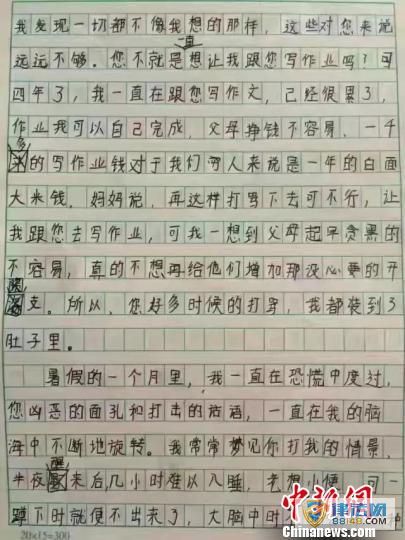 我发现一切都不像我想的那样，这些对您来说
远远不够。您不就是一直想让我跟您写作业吗？可
四年了，我一直在跟您写作文，已经很累了，
作业我可以自己完成，父母挣钱不容易，一千
多的写作业钱对于我们穷人来说是一年的白面
大米钱，妈妈说，再这样打骂下去可不行，让
我跟您去写作业，可我一想到父母起早贪黑的
不容易，真的不想再给他们增加那没必要的开
支。所以，您好多时候的打骂，我都装到了
肚子里。
暑假的一个月里，我一直在恐慌中度过，
您凶恶的面孔和打击的话语，一直在我的脑
海中不断地旋转。我常常梦见你打我的情景，
半夜醒来后几小时难以入睡，老想小便，可一
蹲下时就便不出来了，大脑中时
20×15=300
中新网
Chinanews.com
律法网
88148.com